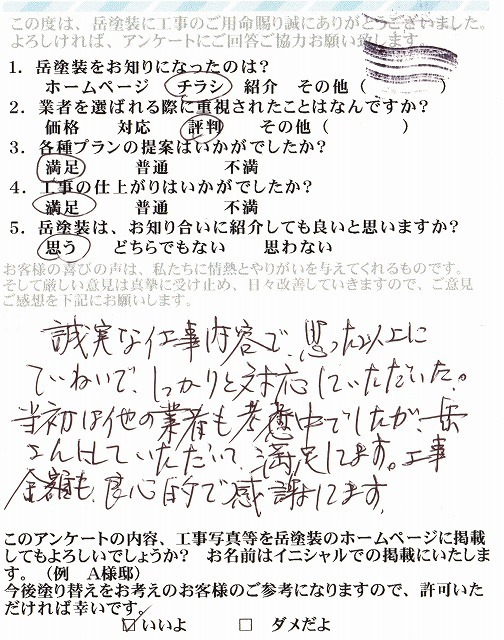 この度は、岳塗装に工事のご用命賜り誠にありがとうございました。
よろしければ、アンケートにご回答ご協力お願い致します。
1．岳塗装をお知りになったのは？
ホームページ　チラシ　紹介　その他（　　　　）
2．業者を選ばれる際に重視されたことはなんですか？
価格　対応　評判　その他（　　　　）
3．各種プランの提案はいかがでしたか？
満足　普通　不満
4．工事の仕上がりはいかがでしたか？
満足　普通　不満
5．岳塗装は、お知り合いに紹介しても良いと思いますか？
思う　どちらでもない　思わない
お客様の喜びの声は、私たちに情熱とやりがいを与えてくれるものです。
そして厳しい意見は真摯に受け止め、日々改善していきますので、ご意見
ご感想を下記にお願いします。
誠実な仕事内容で、思った以上に
ていねいで、しっかりと対応していただいた。
当初は他の業者も考慮中でしたが、岳
さんにしていただいて、満足してます。工事
金額も、良心的で感謝してます。
このアンケートの内容、工事写真等を岳塗装のホームページに掲載
してもよろしいでしょうか？　お名前はイニシャルでの掲載にいたしま
す。（例　A様邸）
今後塗り替えをお考えのお客様のご参考になりますので、許可いた
だければ幸いです。
☑いいよ　□　ダメだよ